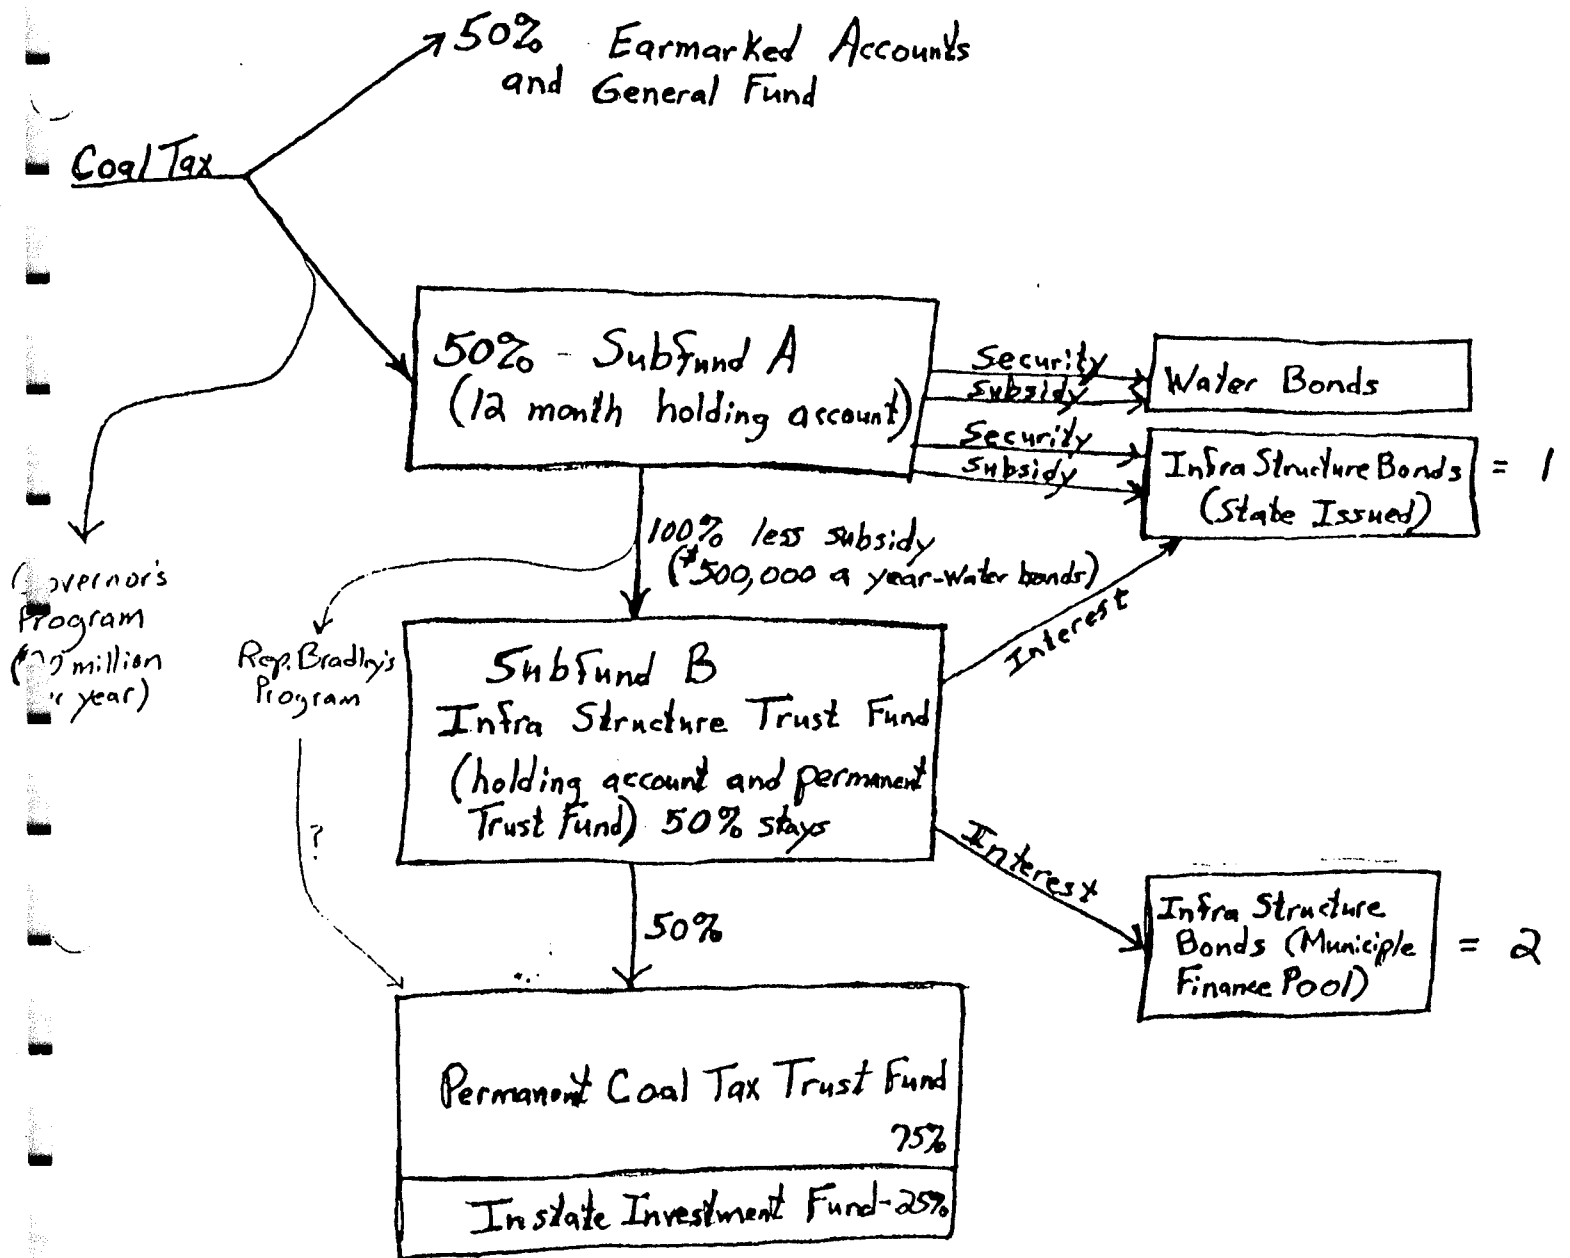 50% Earmarked Accounts
and General Fund
Coal Tax
50% - Subfund A
(12 month holding account)
Security
Subsidy
Water Bonds
Security
Subsidy
Infra Structure Bonds
(State Issued)
= 1
100% less subsidy
($500,000 a year-Water bonds)
Interest
Program
million
year)
Rep. Bradley's
Program
?
Subfund B
Infra Structure Trust Fund
(holding account and permanent
Trust Fund) 50% stays
Interest
Infra Structure
Bonds (Municiple
Finance Pool)
= 2
50%
Permanent Coal Tax Trust Fund
75%
Instate Investment Fund-25%